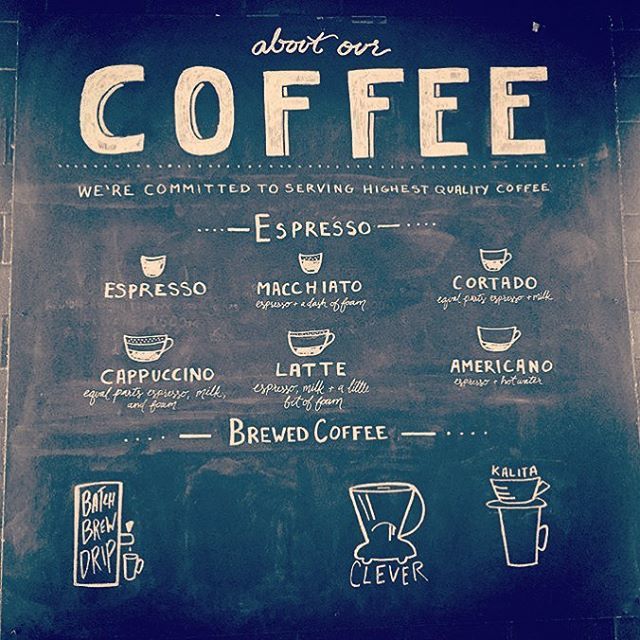 about our
COFFEE
WE'RE COMMITTED TO SERVING HIGHEST QUALITY COFFEE
ESPRESSO
ESPRESSO
MACCHIATO
espresso + a dash of foam
CORTADO
equal parts espresso + milk
CAPPUCCINO
equal parts espresso, milk,
and foam
LATTE
espresso, milk + a little
bit of foam
AMERICANO
espresso + hot water
BREWED COFFEE
BATCH
BREW
DRIP
CLEVER
KALITA